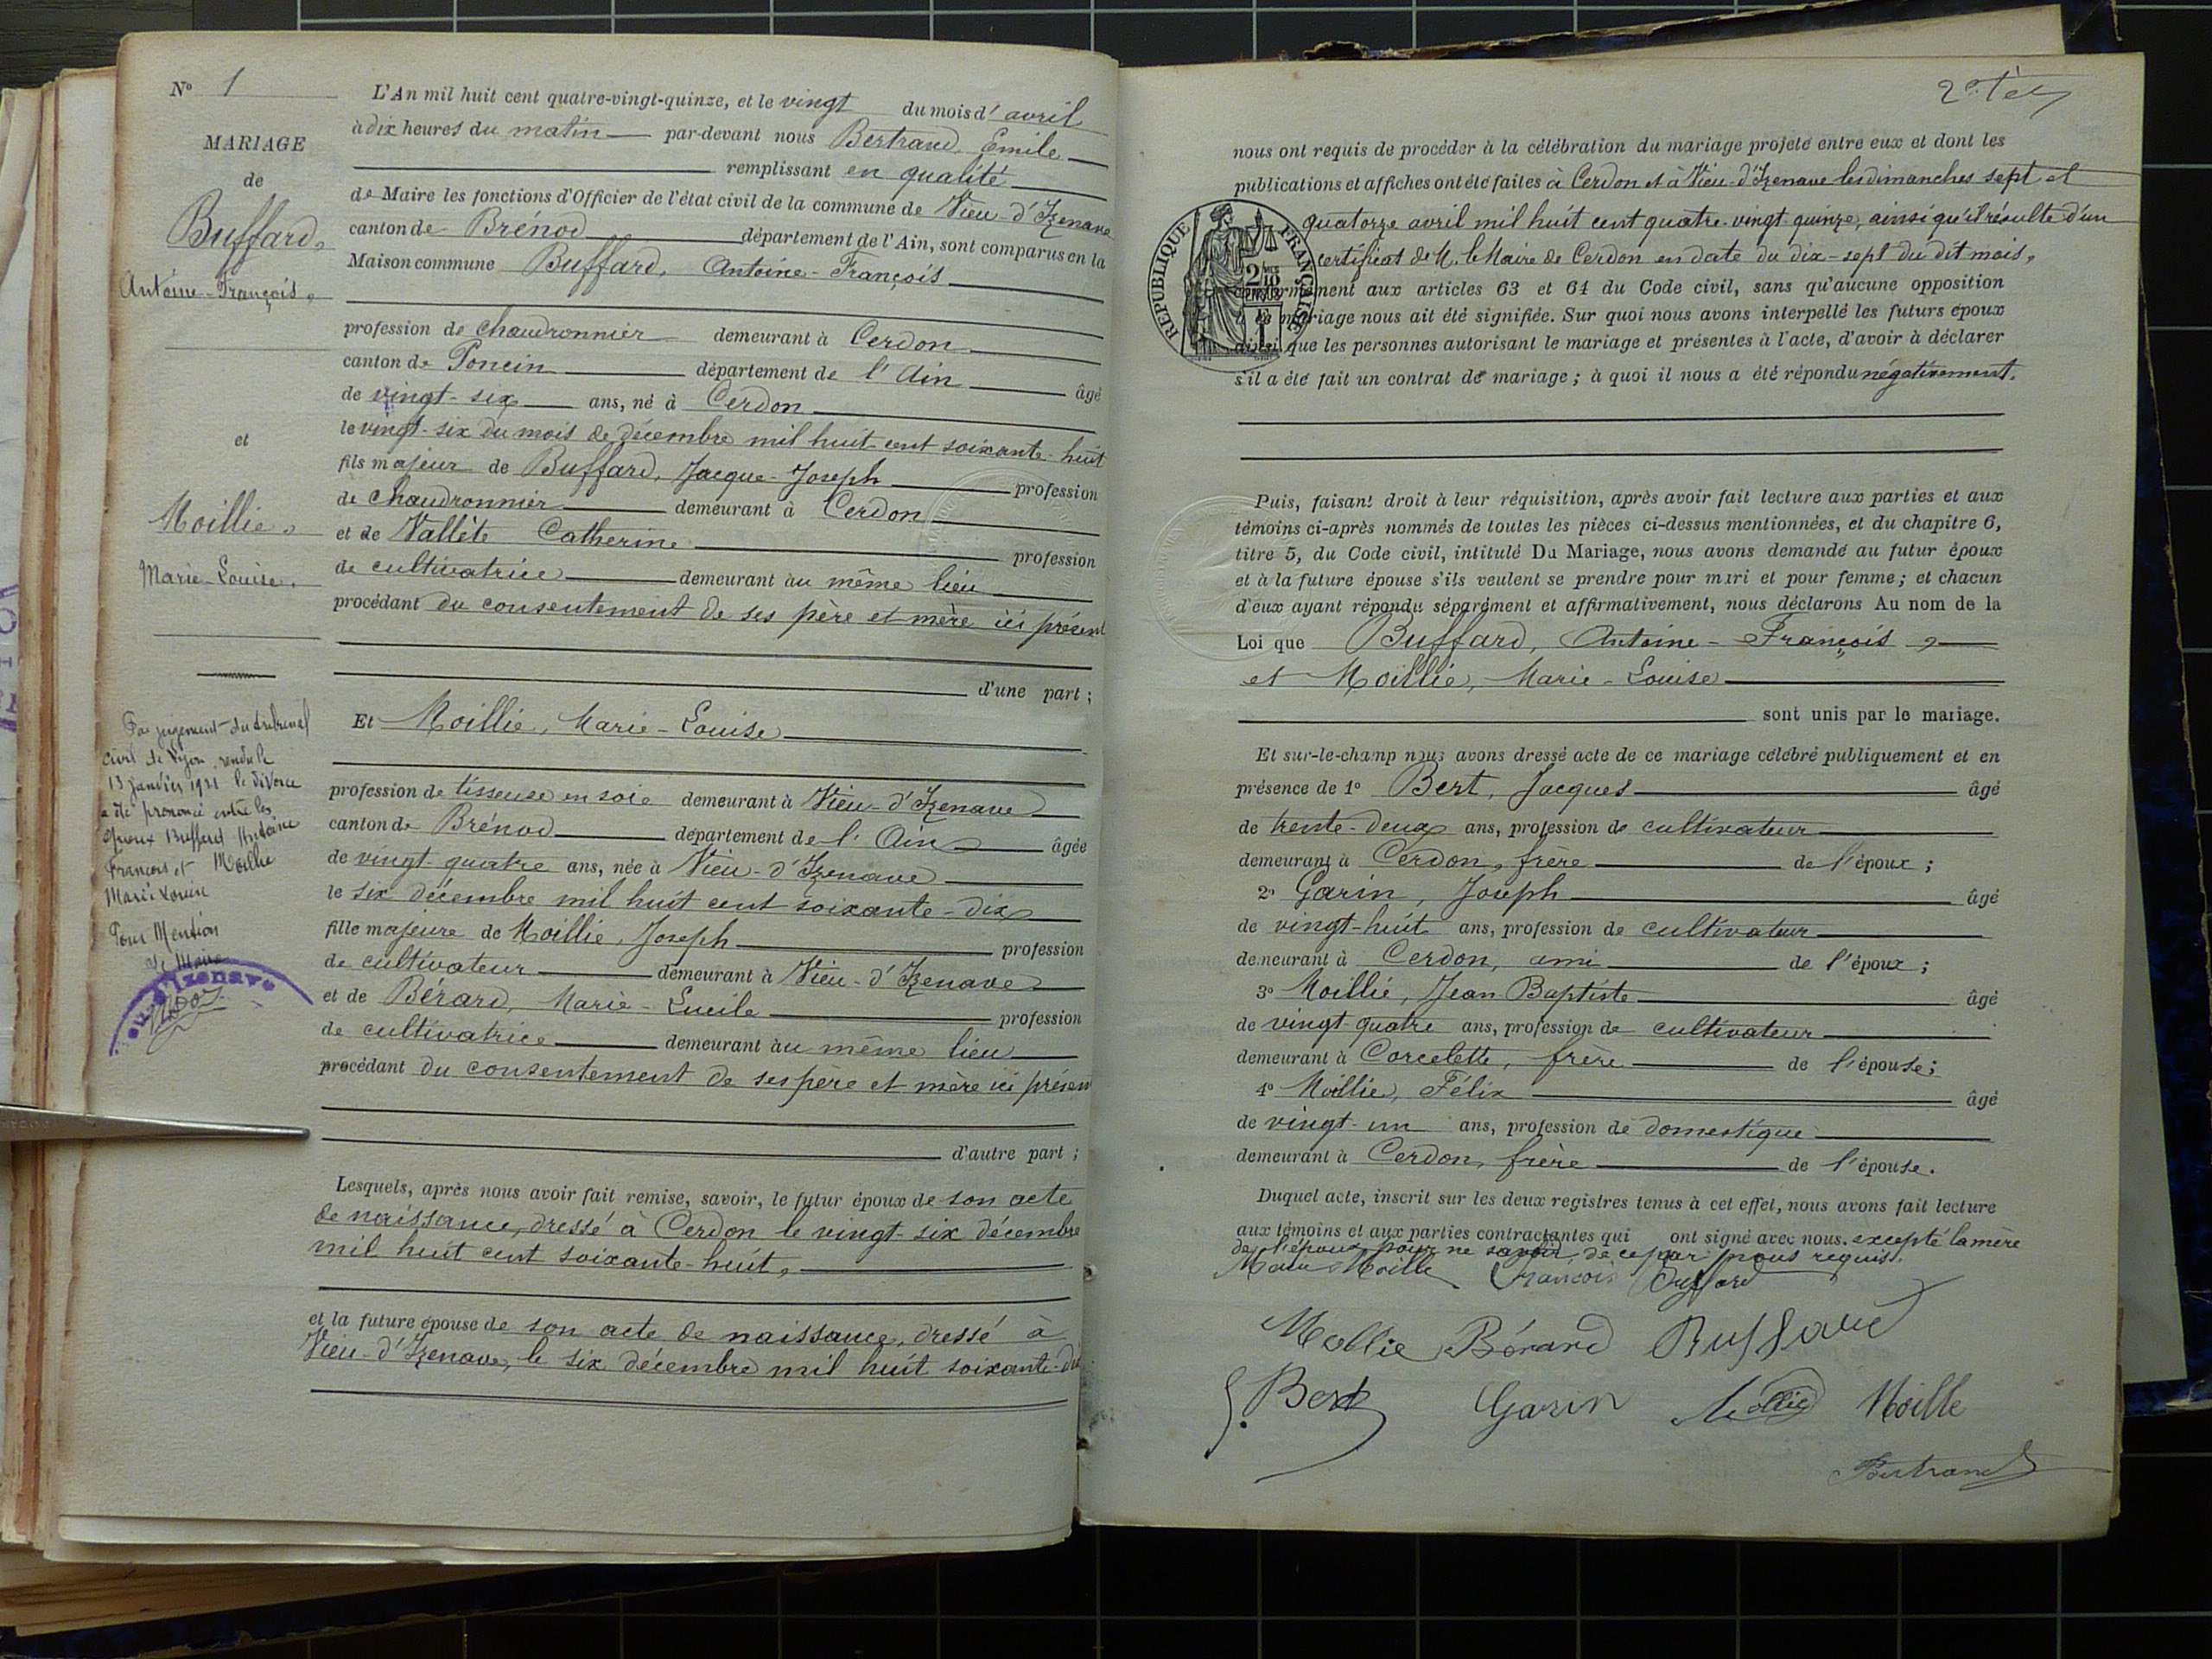 N° 1
MARIAGE
de
Buffard,
Antoine-François,
et
Moillie,
Marie-Louise.
Par jugement du tribunal
civil de Lyon, rendu le
13 janvier 1921 le divorce
a été prononcé entre les
époux Buffard Antoine
François et Moillie
Marie Louise
Pour Mention
Le Maire
L'An mil huit cent quatre-vingt-quinze, et le vingt du mois d'avril
à dix heures du matin par-devant nous Bertrand, Emile
remplissant en qualité
de Maire les fonctions d'Officier de l'état civil de la commune de Vieu-d'Izenave
canton de Brénod département de l'Ain, sont comparus en la
Maison commune Buffard, Antoine-François
profession de chaudronnier demeurant à Cerdon
canton de Poncin département de l'Ain âgé
de vingt-six ans, né à Cerdon
le vingt-six du mois de décembre mil huit cent soixante-huit
fils majeur de Buffard, Jacque-Joseph profession
de chaudronnier demeurant à Cerdon
et de Vallète Catherine profession
de cultivatrice demeurant au même lieu
procédant du consentement de ses père et mère ici présent
d'une part ;
Et Moillie, Marie-Louise
profession de tisseuse en soie demeurant à Vieu-d'Izenave
canton de Brénod département de l'Ain âgée
de vingt-quatre ans, née à Vieu-d'Izenave
le six décembre mil huit cent soixante-dix
fille majeure de Moillie, Joseph profession
de cultivateur demeurant à Vieu-d'Izenave
et de Bérard, Marie-Lucile profession
de cultivatrice demeurant au même lieu
procédant du consentement de ses père et mère ici présen
d'autre part ;
Lesquels, après nous avoir fait remise, savoir, le futur époux de son acte
de naissance, dressé à Cerdon le vingt-six décembre
mil huit cent soixante-huit,
et la future épouse de son acte de naissance, dressé à
Vieu-d'Izenave, le six décembre mil huit soixante-dix
nous ont requis de procéder à la célébration du mariage projeté entre eux et dont les
publications et affiches ont été faites à Cerdon et à Vieu-d'Izenave les dimanches sept et
quatorze avril mil huit cent quatre-vingt quinze, ainsi qu'il résulte d'un
certificat de M. le Maire de Cerdon en date du dix-sept du dit mois,
RÉPUBLIQUE FRANÇAISE
conformément aux articles 63 et 64 du Code civil, sans qu'aucune opposition
mariage nous ait été signifiée. Sur quoi nous avons interpellé les futurs époux
ainsi que les personnes autorisant le mariage et présentes à l'acte, d'avoir à déclarer
s'il a été fait un contrat de mariage ; à quoi il nous a été répondu négativement.
Puis, faisant droit à leur réquisition, après avoir fait lecture aux parties et aux
témoins ci-après nommés de toutes les pièces ci-dessus mentionnées, et du chapitre 6,
titre 5, du Code civil, intitulé Du Mariage, nous avons demandé au futur époux
et à la future épouse s'ils veulent se prendre pour mari et pour femme ; et chacun
d'eux ayant répondu séparément et affirmativement, nous déclarons Au nom de la
Loi que Buffard, Antoine-François,
et Moillie, Marie-Louise
sont unis par le mariage.
Et sur-le-champ nous avons dressé acte de ce mariage célébré publiquement et en
présence de 1° Bert, Jacques âgé
de trente-deux ans, profession de cultivateur
demeurant à Cerdon, frère de l'époux ;
2° Garin, Joseph âgé
de vingt-huit ans, profession de cultivateur
demeurant à Cerdon, ami de l'époux ;
3° Moillie, Jean Baptiste âgé
de vingt-quatre ans, profession de cultivateur
demeurant à Corcelette, frère de l'épouse ;
4° Moillie, Félix âgé
de vingt-un ans, profession de domestique
demeurant à Cerdon, frère de l'épouse.
Duquel acte, inscrit sur les deux registres tenus à cet effet, nous avons fait lecture
aux témoins et aux parties contractantes qui ont signé avec nous, excepté la mère
de l'époux pour ne savoir, de ce par nous requis.
Marie Moillie François Buffard
Moillie Bérard Buffard
J. Bert Garin Moillie Moille
Bertrand